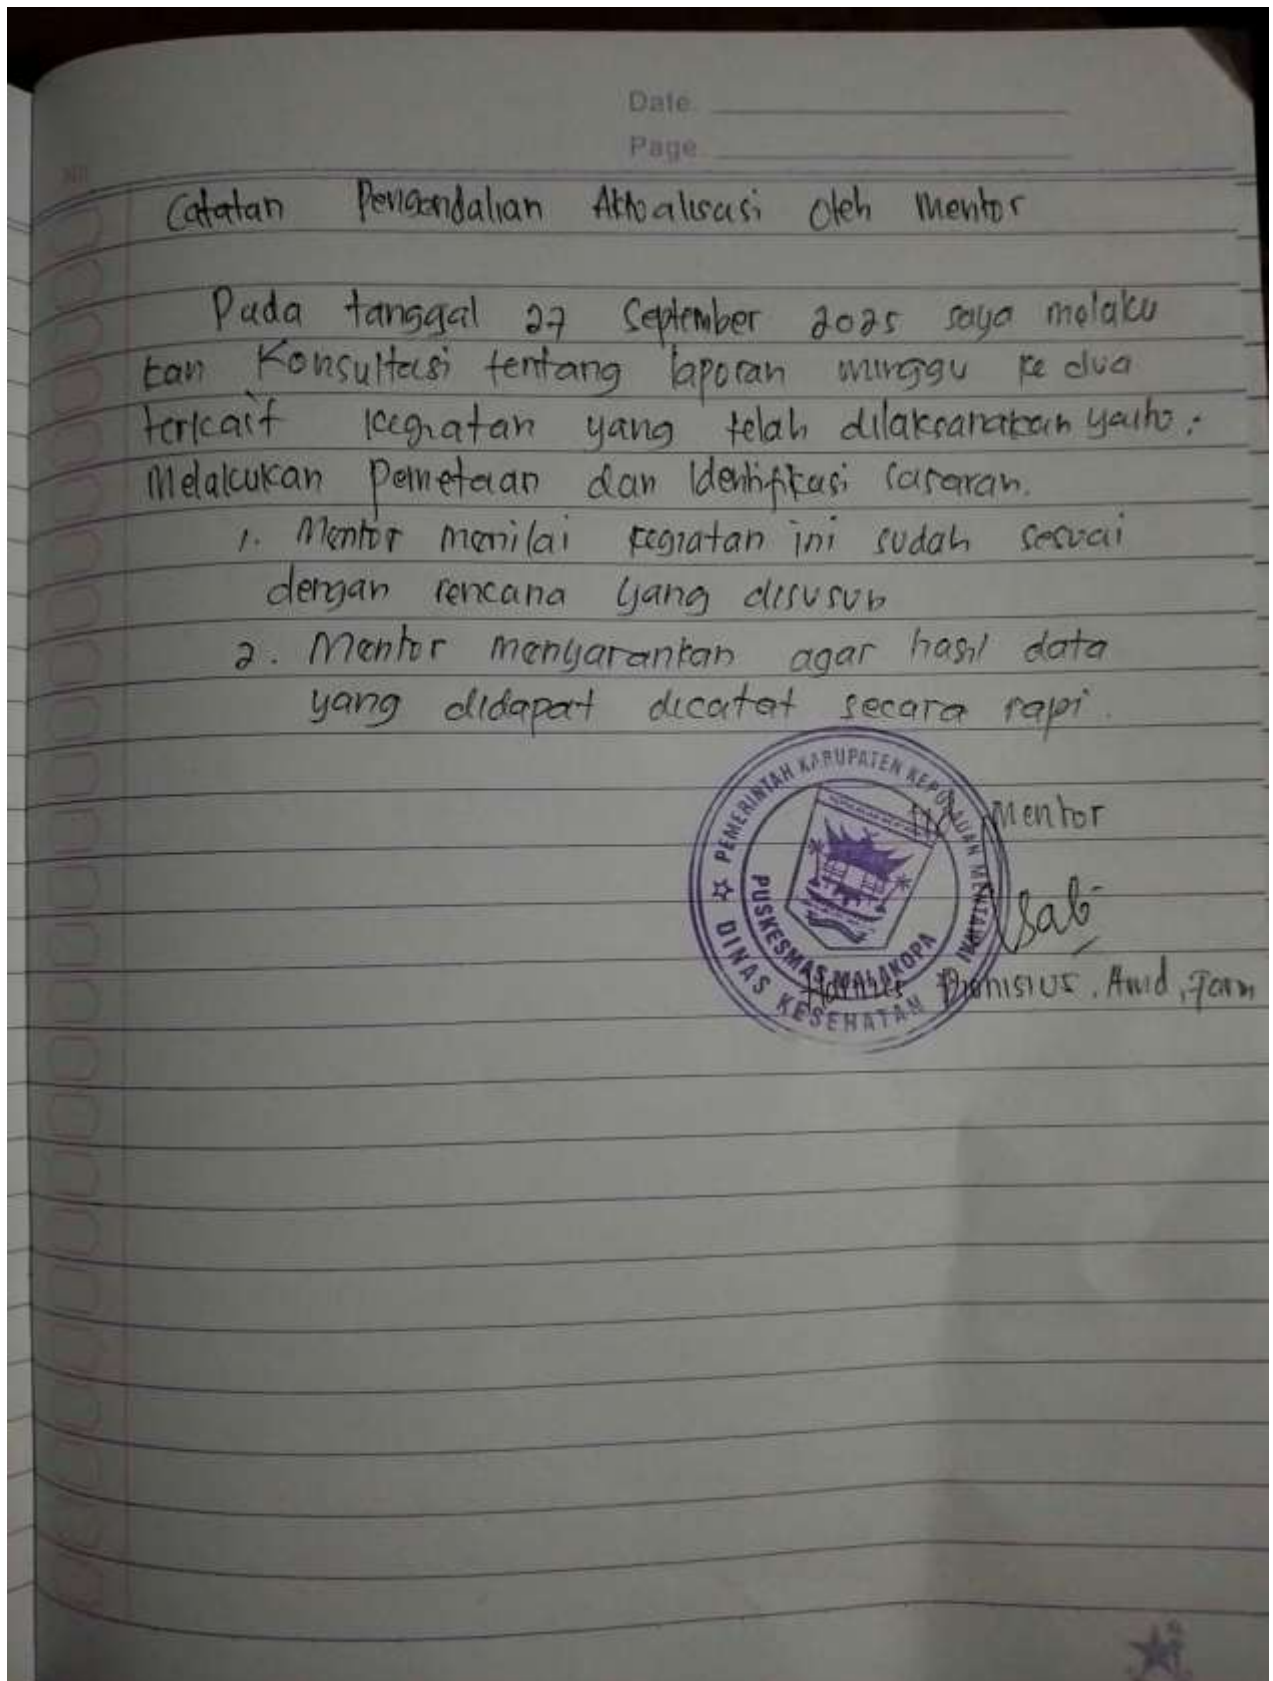 Date.
Page
No
Catatan Pengendalian Aktualisasi oleh Mentor
Pada tanggal 27 September 2025 saya melaku
kan Konsultasi tentang laporan minggu ke dua
terkait kegiatan yang telah dilaksanakan yaitu:
Melakukan Pemetaan dan Identifikasi sasaran.
1. Mentor menilai kegiatan ini sudah sesuai
dengan rencana yang disusun
2. Mentor menyarankan agar hasil data
yang didapat dicatat secara rapi.
PEMERINTAH KABUPATEN KEPULAUAN MENTAWAI
Mentor
PUSKESMAS MALAKOPA
DINAS KESEHATAN
Dionisius. Amd, Farm